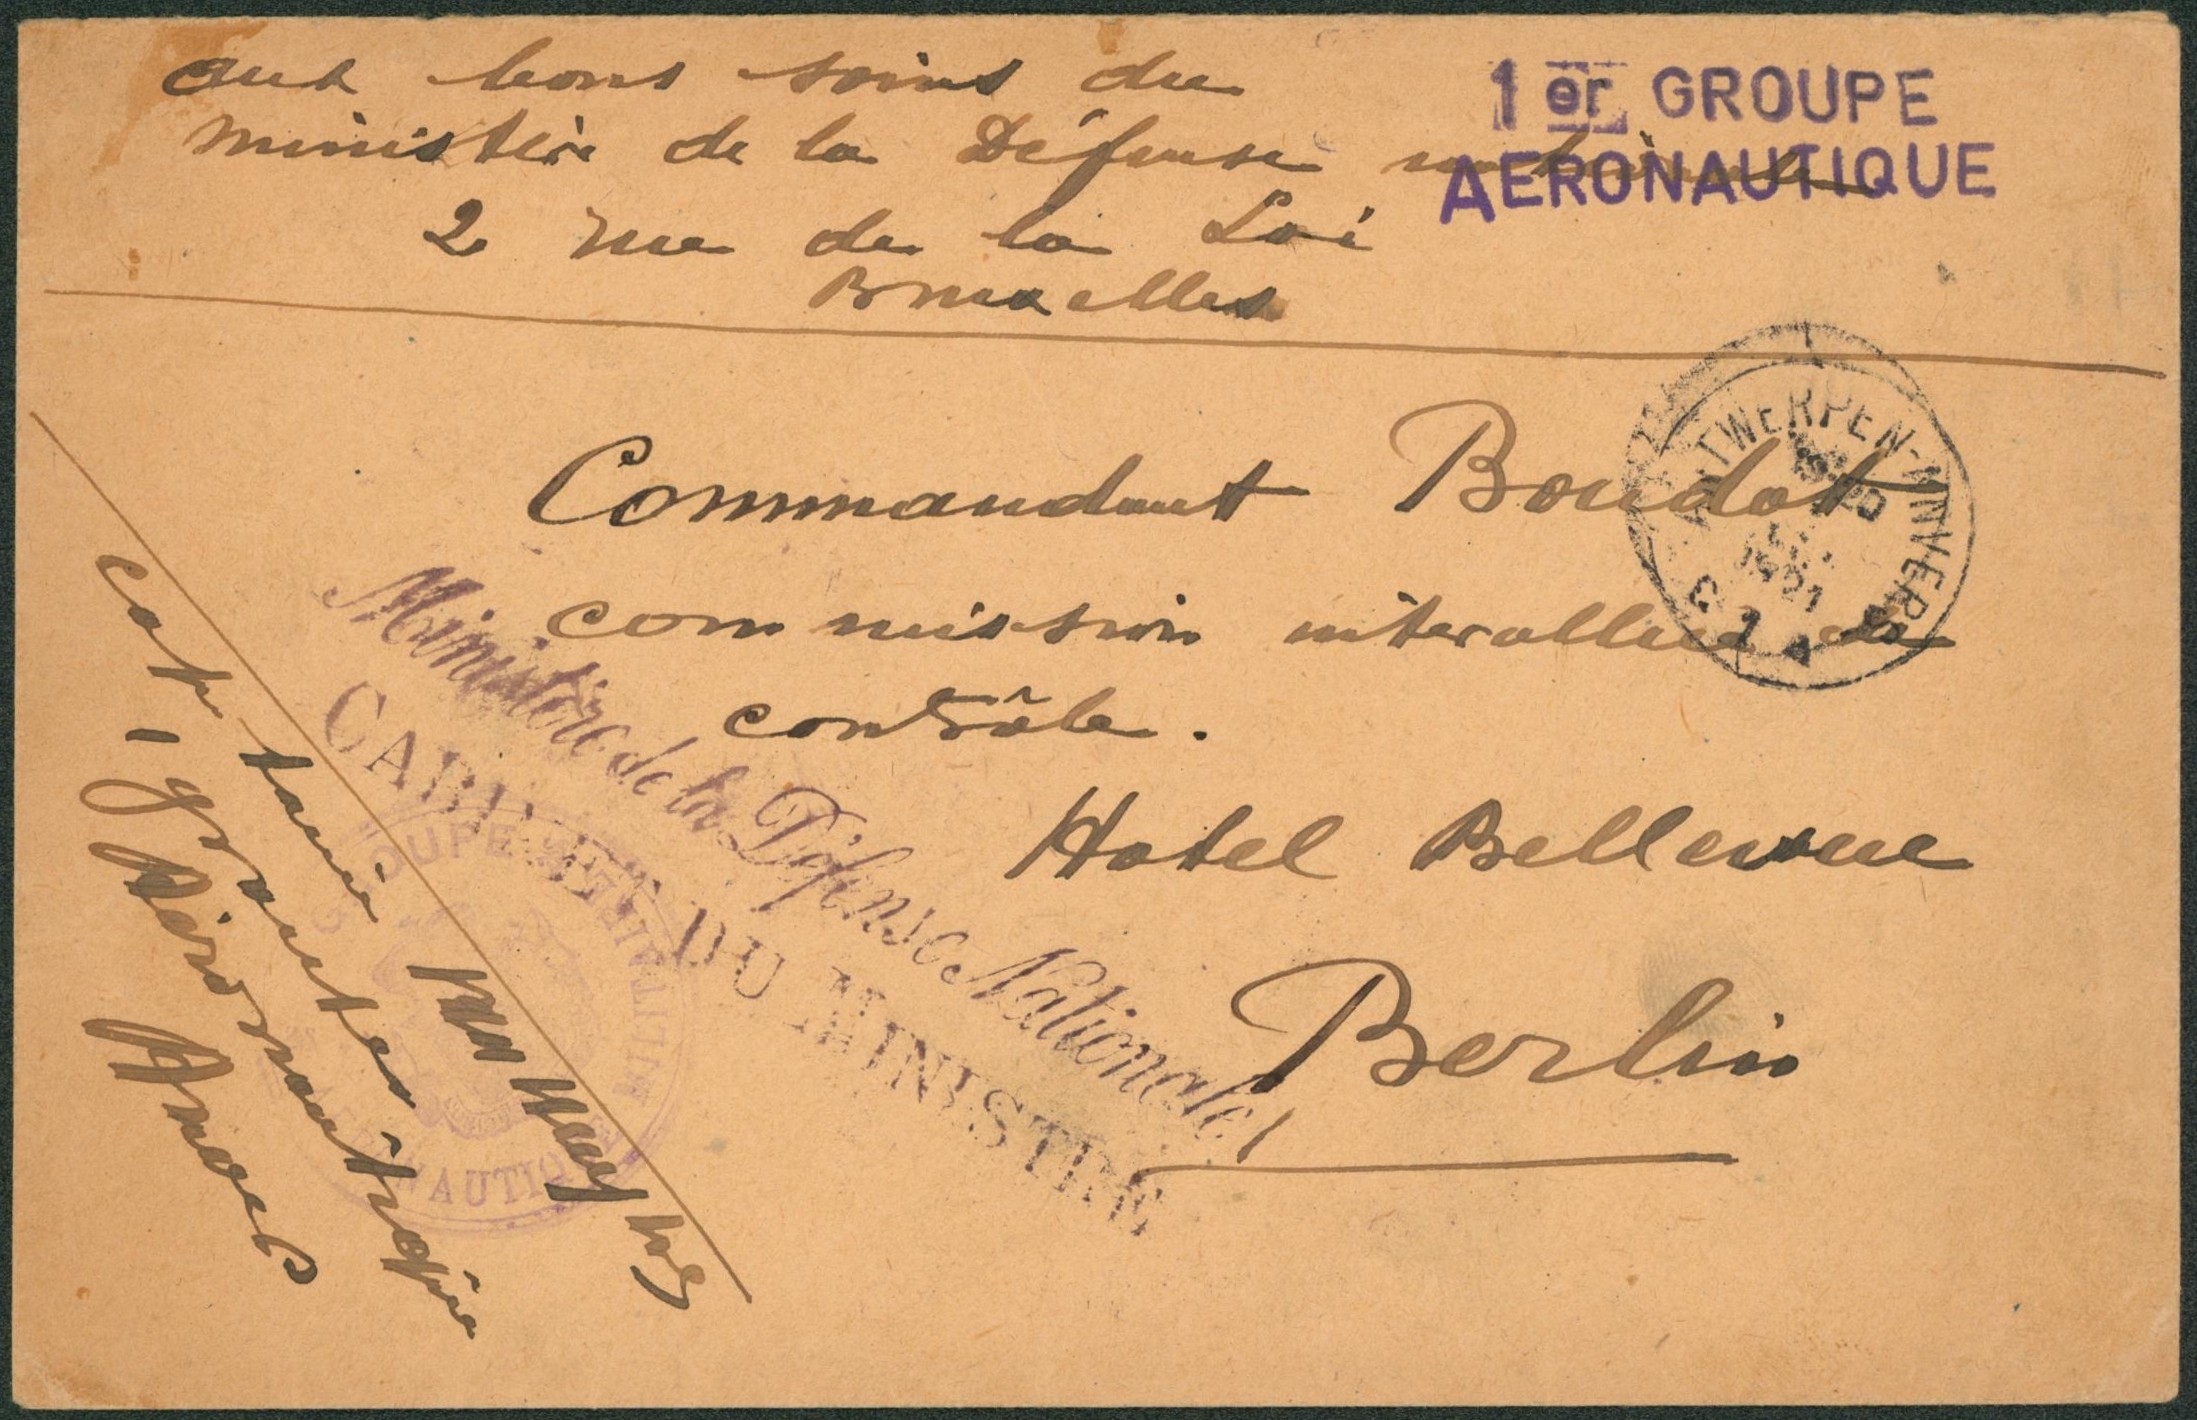 aux bons soins du
1er GROUPE
ministère de la Défense nationale
AERONAUTIQUE
2 rue de la Loi
Bruxelles
ANTWERPEN-ANVERS
1921
Commandant Boudot
commission interalliée de
contrôle.
Hotel Bellevue
Berlin
Ministère de la Défense Nationale
CABINET DU MINISTRE
GROUPE
AERONAUTIQUE
1 groupe
Aéronautique
Anvers